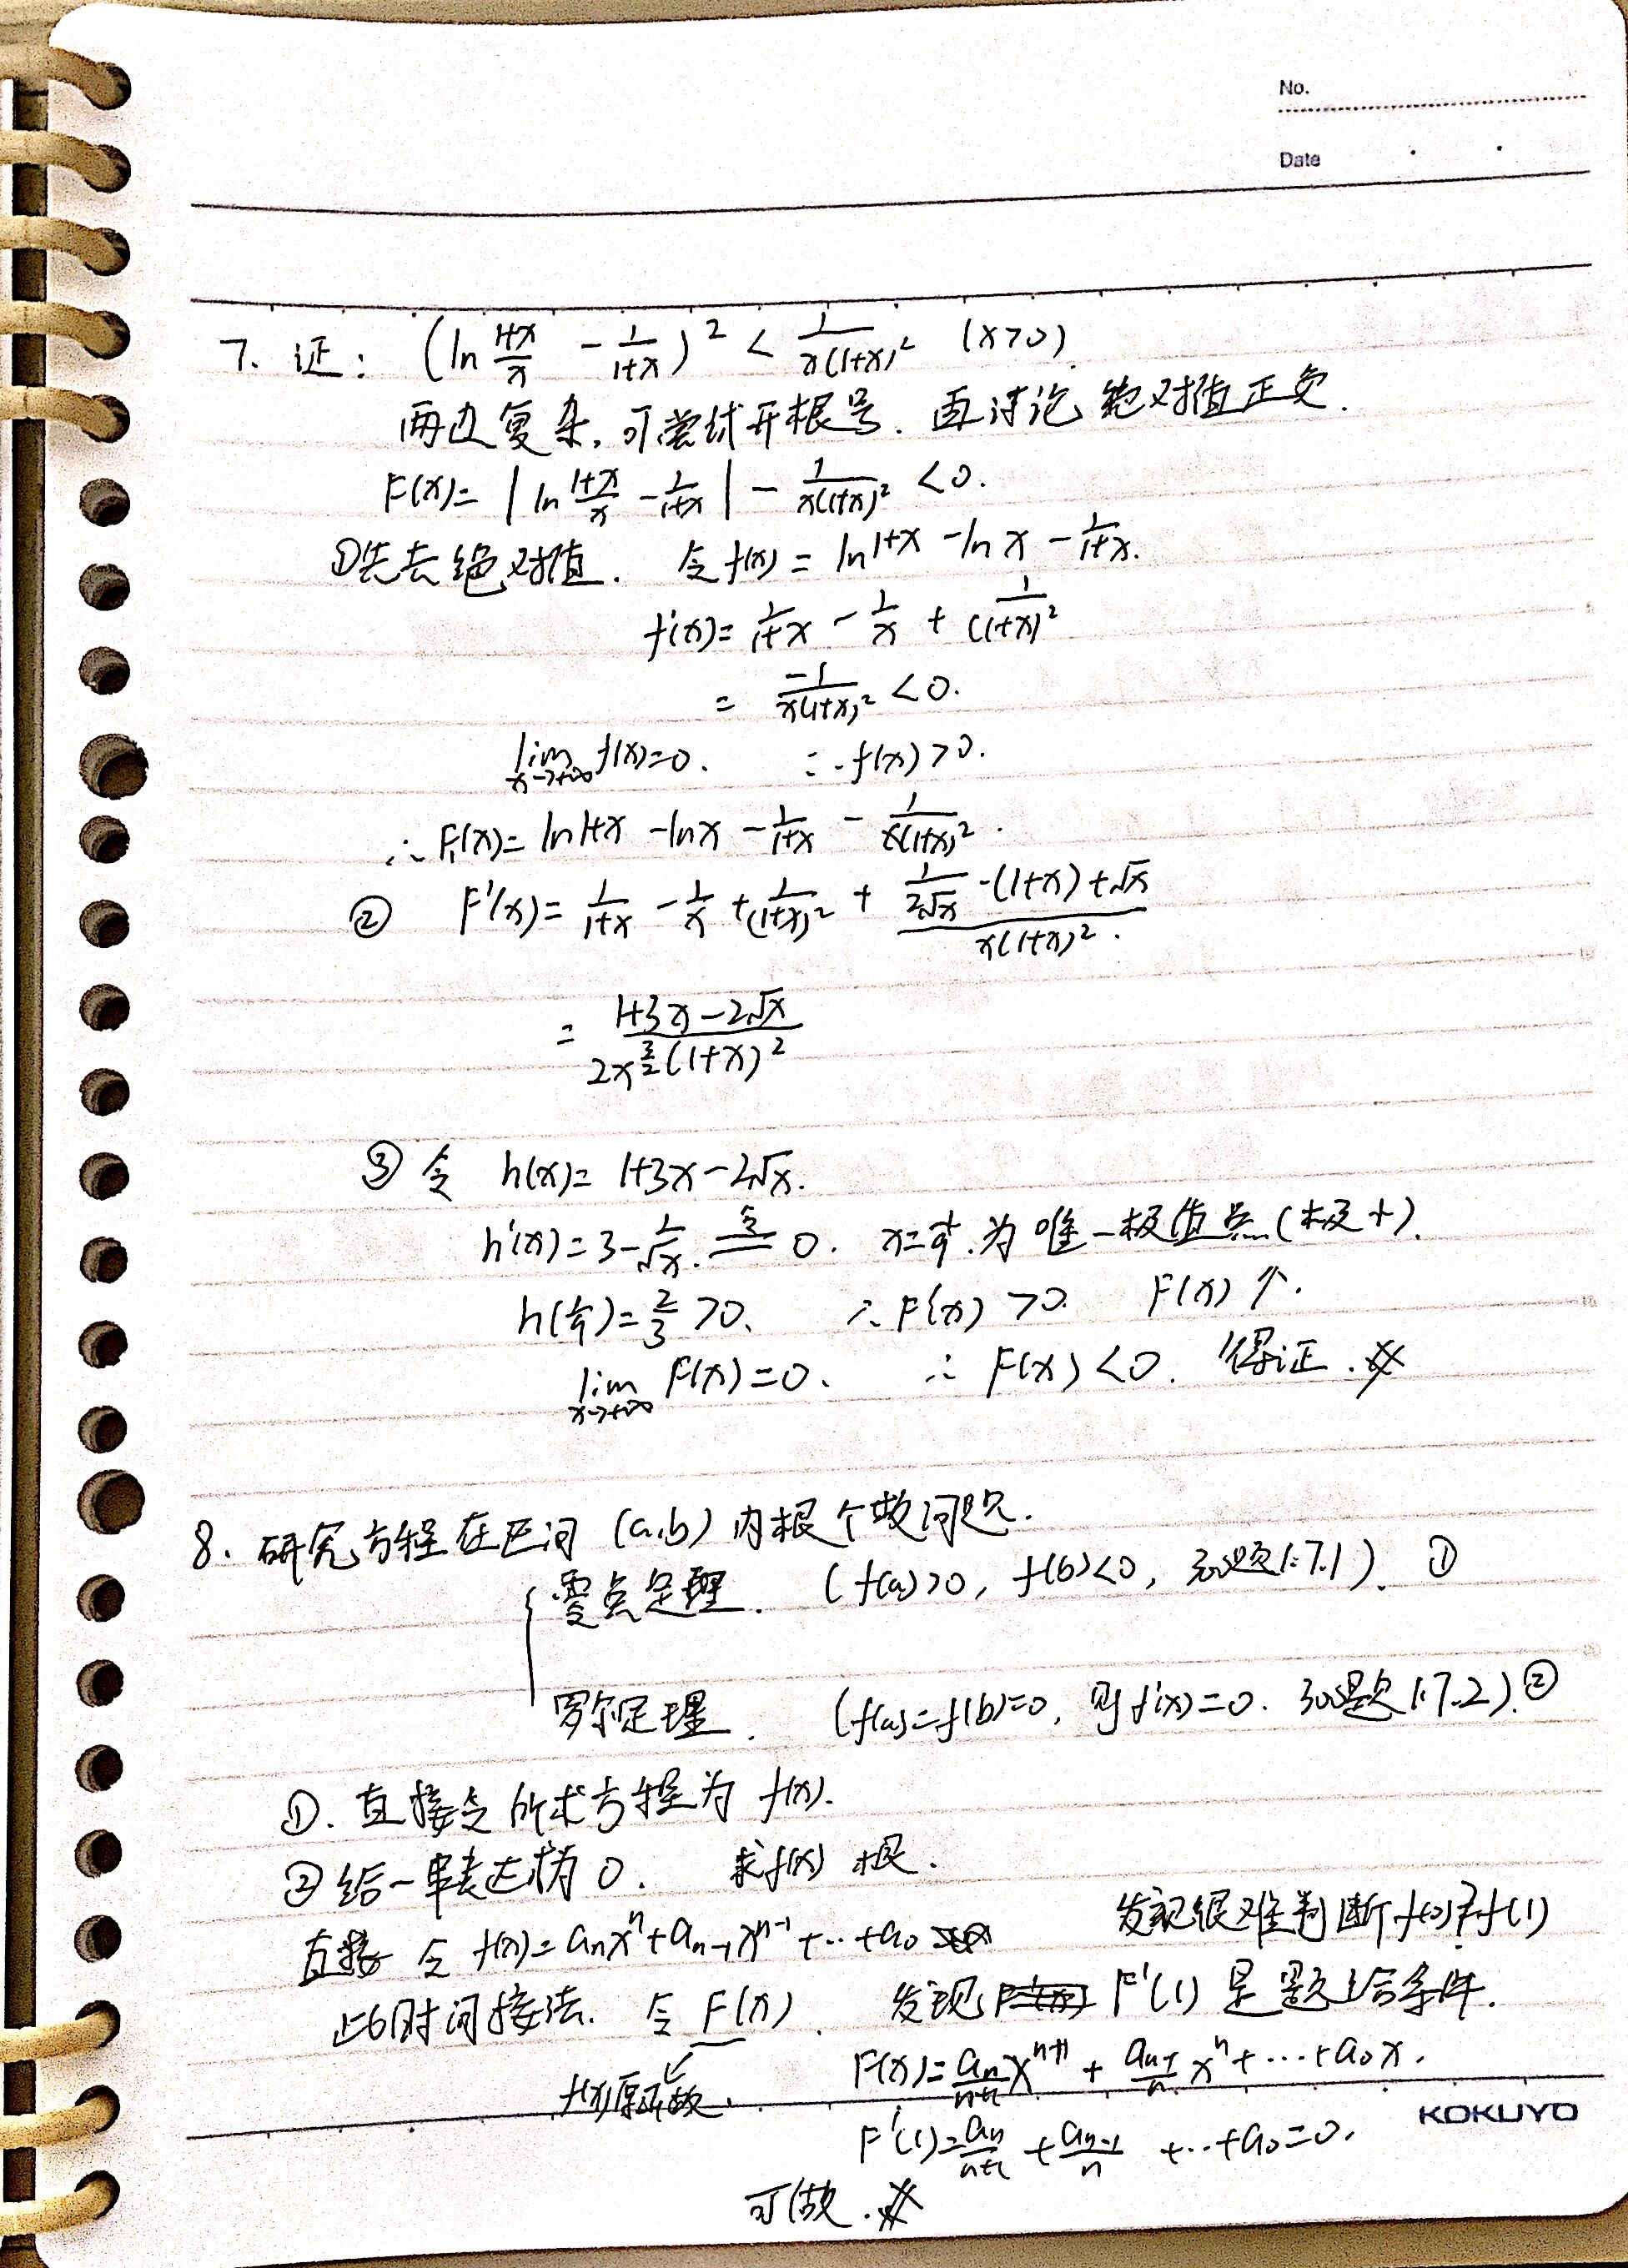 No.
Date
7. 证: (ln (1+x)/x - 1/(1+x))² < 1/(x(1+x)²) (x>0)
两边复杂,可尝试开根号. 再讨论绝对值正负.
F(x)= |ln (1+x)/x - 1/(1+x)| - 1/(x(1+x)²) <0.
①先去绝对值. 令f(x) = ln1+x -lnx - 1/(1+x).
f'(x)= 1/(1+x) - 1/x + 1/(1+x)²
= -1/(x(1+x)²) <0.
lim x→+∞ f(x)=0. ∴f(x)>0.
∴ F(x)= ln1+x -lnx - 1/(1+x) - 1/(x(1+x)²).
② F'(x)= 1/(1+x) - 1/x + 1/(1+x)² + (1/(2√x)·(1+x)+√x)/(x(1+x)²).
= (1+3x-2√x)/(2x^(3/2)(1+x)²)
③ 令 h(x)= 1+3x-2√x.
h'(x)=3-1/√x 令= 0. x=1/9.为唯一极值点(极小).
h(1/9)=2/3>0. ∴F'(x)>0. F(x)↑.
lim x→+∞ F(x)=0. ∴ F(x)<0. 得证.
8. 研究方程在区间 (a,b) 内根个数问题.
零点定理. (f(a)>0, f(b)<0, 如题1.7.1). ①
罗尔定理. (f(a)=f(b)=0, 则f'(x)=0. 如题1.7.2).②
①. 直接令所求方程为 f(x).
②给一串表达式为0. 求f(x) 根.
直接 令 f(x)=aₙxⁿ+aₙ₋₁xⁿ⁻¹+…+a₀ 发现很难判断f(0)?f(1)
此时间接法. 令 F(x). 发现 F'(1) 是题给条件.
f(x)原函数. F(x)=aₙ/(n+1) xⁿ⁺¹ + aₙ₋₁/n xⁿ+…+a₀x.
F'(1)=aₙ/(n+1) + aₙ₋₁/n +…+a₀=0.
KOKUYO
可做.